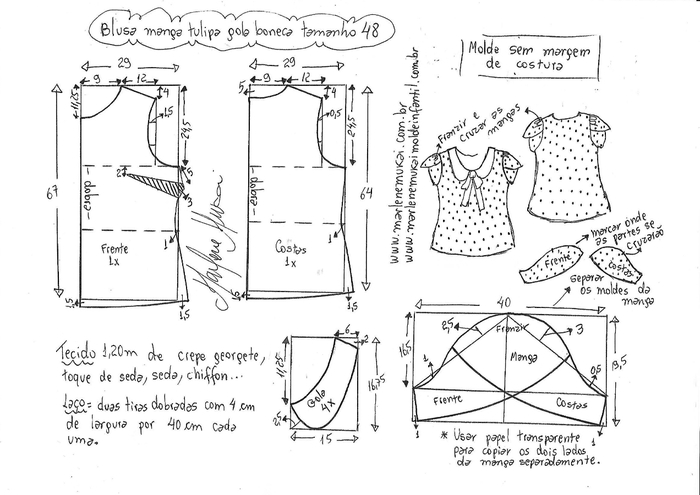 Blusa manga tulipa gola boneca tamanho 48
Molde sem margem
de costura
29
9
12
4
11,25
1,5
24,5
67
2
5
3
dobra
Frente
1x
1
1,5
1,5
29
5
9
12
4
0,5
24,5
64
dobra
Costas
1x
1
1,5
1,5
Marlene Mukai
www.marlenemukai.com.br
www.marlenemukaimoldeinfantil.com.br
Franzir e
cruzar as
mangas
marcar onde
as partes se
cruzarão
Frente
Costas
separar
os moldes da
manga
Tecido 1,20m de crepe georgete,
toque de seda, seda, chiffon...
Laço = duas tiras dobradas com 4 cm
de largura por 40 cm cada
uma.
6
2
11,25
16,75
Gola
4x
2,5
15
40
16,5
2,5
Franzir
3
Manga
1
0,5
13,5
Frente
Costas
1
1
* Usar papel transparente
para copiar os dois lados
da manga separadamente.